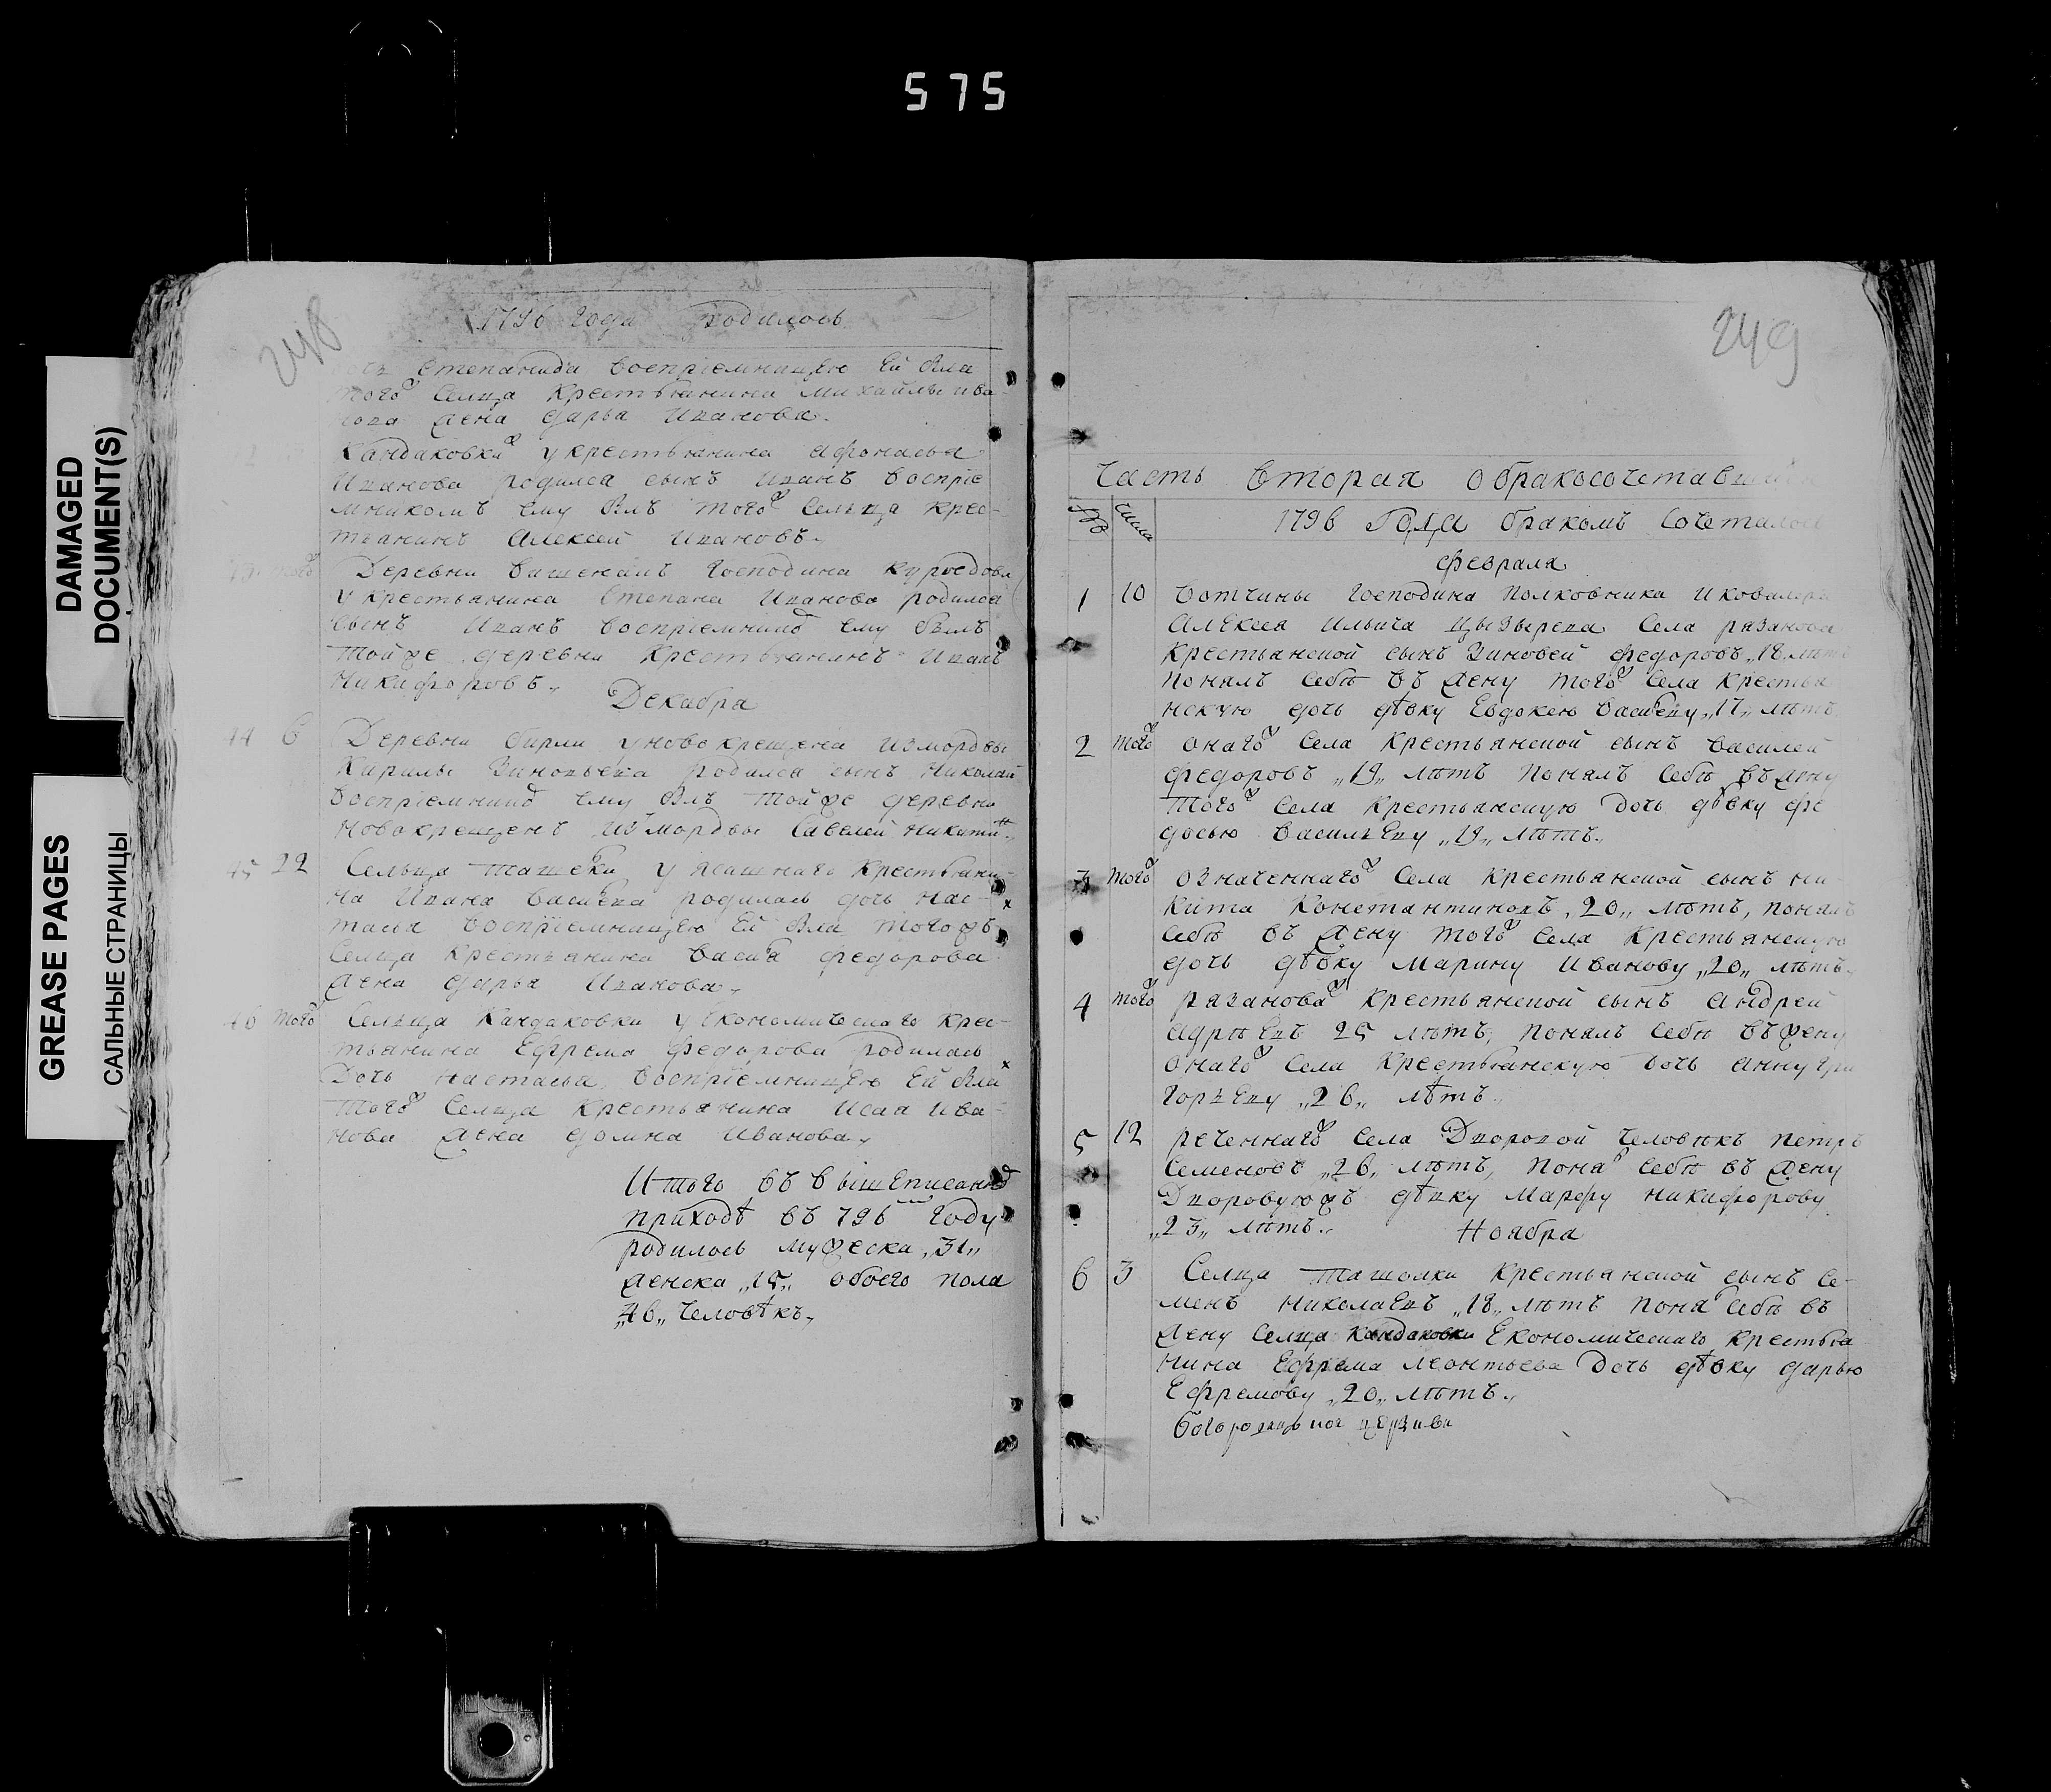 575
DAMAGED
DOCUMENT(S)
GREASE PAGES
САЛЬНЫЕ СТРАНИЦЫ
248
1796 года Родилось
Степанида восприемницею ей бла
тогож Селца Крестьянина михайлы ива
нова жена дарья Иванова.
Кандаковкиж у крестьянина афонасья
Иванова родился сынъ Иванъ восприе
мникомъ ему блъ тогож Сельца крес-
тьянинъ Алексей Ивановъ.,
тогож Деревни Господина куроедова
у крестьянина Степана Иванова родился
сынъ Иванъ восприемником ему былъ
тойже деревни Крестьянинъ Иванъ
Никифоровъ.,
Декабря
44 6 Деревни бирли уновокрещена измордвы
Кирилы Зиновьева родился сынъ Николай
восприемником ему блъ тойже деревни
новокрещенъ измордвы Савелей Никитин.,
45 22 Сельца ташелки у ясашнаго Крестьяни-
на Ивана Василева родилась дочь Нас-
тасья восприемницею ей бла тогожъ
Селца Крестьянина Васиlя федорова
жена дарья Иванова.,
46 тогож Сельца Кандаковки у Економическаго крес-
тьянина Ефрема Федорова родилась
Дочь Настасья, восприемницею ей бла
тогож Селца Крестьянина Исая Ива-
нова жена домна Иванова.,
Итого въ вышеписанном
приходѣ въ 796м году
родилось мужеска „31„
женска „15„ обоего пола
„46„ человѣкъ.,
249
Часть вторая обракосочетавш
числа
1796 Года бракомъ Сочеталось
февраля
1 10 вотчины Господина Полковника и ковалера
Алексея Ильича Цызырева Села разанова
Крестьянской сынъ Зиновей федоровъ „18„ лѣтъ
понялъ Себѣ въ жену тогож Села Крестья
нскую дочь дѣвку Евдокею Васиlеву „17„ лѣтъ
2 тогож онагож Села Крестьянской сынъ василей
федоровъ „19„ лѣтъ Понялъ Себѣ въжену
тогож Села Крестьянскую Дочь дѣвку фе
досью Васильеву „19„ лѣтъ.,
3 тогож означеннагож Села Крестьянской сынъ ни-
кита Константиновъ „20„ лѣтъ, понялъ
себѣ въ жену тогож Села Крестьянскую
дочь дѣвку Марину Иванову „20„ лѣтъ.
4 тогож разановаж Крестьянской сынъ Андрей
андрѣевъ 25 лѣтъ, понялъ Себѣ въжену
онагож Села Крестьянскую дочь анну гри
горьеву „26„ лѣтъ.
5 12 реченнагож Села Дворовой Человѣкъ Петръ
Семеновъ „26„ лѣтъ, Понял себѣ въ жену
Дворовуюжъ дѣвку Марфу Никифорову
„23„ лѣтъ.,
Ноября
6 3 Селца ташолки Крестьянской сынъ Се-
менъ Николаевъ „18„ лѣтъ понял себѣ въ
жену Селца Кандаковки Економическаго Крестья
нина Ефрема леонтьева Дочь дѣвку дарью
Ефремову „20„ лѣтъ.,